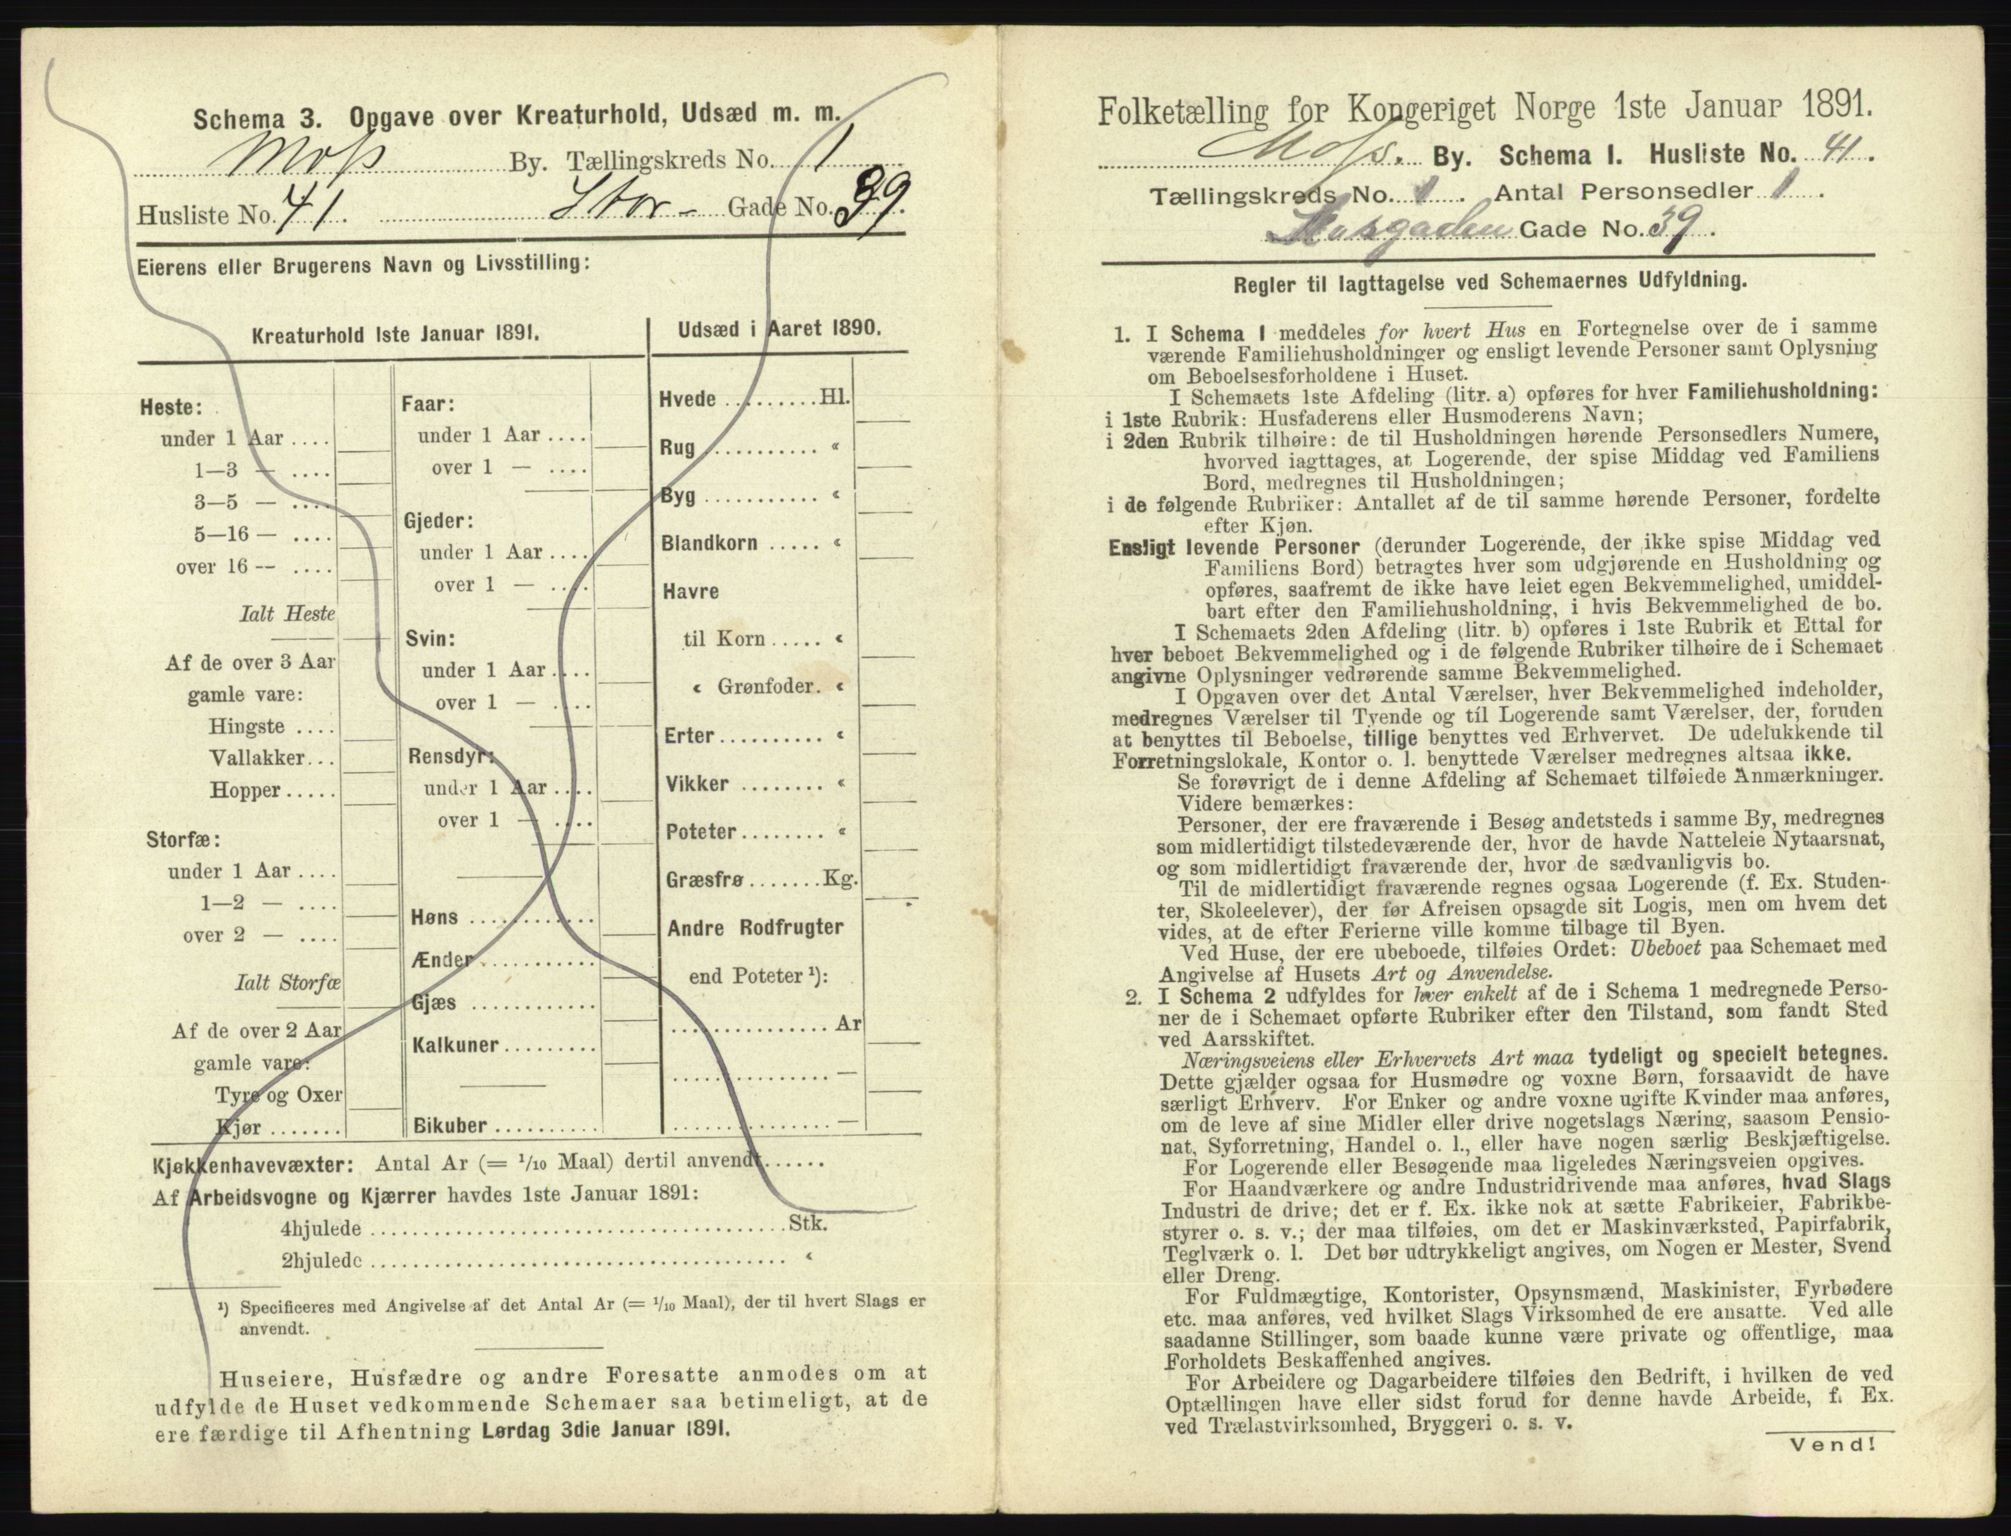 Schema 3. Opgave over Kreaturhold, Udsæd m. m.
Moss By. Tællingskreds No. 1
Husliste No. 41. Stor- Gade No. 39.
Eierens eller Brugerens Navn og Livsstilling:
Kreaturhold 1ste Januar 1891.
Heste:
under 1 Aar ....
1—3 — ....
3—5 — ....
5—16 — ....
over 16 — ....
Ialt Heste
Af de over 3 Aar
gamle vare:
Hingste ....
Vallakker...
Hopper .....
Storfæ:
under 1 Aar ....
1—2 — ....
over 2 — ....
Ialt Storfæ
Af de over 2 Aar
gamle vare:
Tyre og Oxer
Kjør .......
Faar:
under 1 Aar ....
over 1 — ....
Gjeder:
under 1 Aar ....
over 1 — ....
Svin:
under 1 Aar ....
over 1 — ....
Rensdyr:
under 1 Aar ....
over 1 — ....
Høns ............
Ænder ...........
Gjæs ............
Kalkuner .........
Bikuber ..........
Udsæd i Aaret 1890.
Hvede .........Hl.
Rug .......... «
Byg ........... «
Blandkorn ..... «
Havre
til Korn ..... «
« Grønfoder. «
Erter .......... «
Vikker ........ «
Poteter ........ «
Græsfrø .......Kg.
Andre Rodfrugter
end Poteter ¹):
............... Ar
............... —
............... —
Kjøkkenhavevæxter: Antal Ar (= 1/10 Maal) dertil anvendt......
Af Arbeidsvogne og Kjærrer havdes 1ste Januar 1891:
4hjulede ........................................Stk.
2hjulede ........................................ «
¹) Specificeres med Angivelse af det Antal Ar (= 1/10 Maal), der til hvert Slags er
anvendt.
Huseiere, Husfædre og andre Foresatte anmodes om at
udfylde de Huset vedkommende Schemaer saa betimeligt, at de
ere færdige til Afhentning Lørdag 3die Januar 1891.
Folketælling for Kongeriget Norge 1ste Januar 1891.
Moss. By. Schema 1. Husliste No. 41.
Tællingskreds No. 1. Antal Personsedler 1.
Storgaden Gade No. 39.
Regler til Iagttagelse ved Schemaernes Udfyldning.
1. I Schema 1 meddeles for hvert Hus en Fortegnelse over de i samme
værende Familiehusholdninger og ensligt levende Personer samt Oplysning
om Beboelsesforholdene i Huset.
I Schemaets 1ste Afdeling (litr. a) opføres for hver Familiehusholdning:
i 1ste Rubrik: Husfaderens eller Husmoderens Navn;
i 2den Rubrik tilhøire: de til Husholdningen hørende Personsedlers Numere,
hvorved iagttages, at Logerende, der spise Middag ved Familiens
Bord, medregnes til Husholdningen;
i de følgende Rubriker: Antallet af de til samme hørende Personer, fordelte
efter Kjøn.
Ensligt levende Personer (derunder Logerende, der ikke spise Middag ved
Familiens Bord) betragtes hver som udgjørende en Husholdning og
opføres, saafremt de ikke have leiet egen Bekvemmelighed, umiddel-
bart efter den Familiehusholdning, i hvis Bekvemmelighed de bo.
I Schemaets 2den Afdeling (litr. b) opføres i 1ste Rubrik et Ettal for
hver beboet Bekvemmelighed og i de følgende Rubriker tilhøire de i Schemaet
angivne Oplysninger vedrørende samme Bekvemmelighed.
I Opgaven over det Antal Værelser, hver Bekvemmelighed indeholder,
medregnes Værelser til Tyende og til Logerende samt Værelser, der, foruden
at benyttes til Beboelse, tillige benyttes ved Erhvervet. De udelukkende til
Forretningslokale, Kontor o. l. benyttede Værelser medregnes altsaa ikke.
Se forøvrigt de i denne Afdeling af Schemaet tilføiede Anmærkninger.
Videre bemærkes:
Personer, der ere fraværende i Besøg andetsteds i samme By, medregnes
som midlertidigt tilstedeværende der, hvor de havde Natteleie Nytaarsnat,
og som midlertidigt fraværende der, hvor de sædvanligvis bo.
Til de midlertidigt fraværende regnes ogsaa Logerende (f. Ex. Studen-
ter, Skoleelever), der før Afreisen opsagde sit Logis, men om hvem det
vides, at de efter Ferierne ville komme tilbage til Byen.
Ved Huse, der ere ubeboede, tilføies Ordet: Ubeboet paa Schemaet med
Angivelse af Husets Art og Anvendelse.
2. I Schema 2 udfyldes for hver enkelt af de i Schema 1 medregnede Perso-
ner de i Schemaet opførte Rubriker efter den Tilstand, som fandt Sted
ved Aarsskiftet.
Næringsveiens eller Erhvervets Art maa tydeligt og specielt betegnes.
Dette gjælder ogsaa for Husmødre og voxne Børn, forsaavidt de have
særligt Erhverv. For Enker og andre voxne ugifte Kvinder maa anføres,
om de leve af sine Midler eller drive nogetslags Næring, saasom Pensio-
nat, Syforretning, Handel o. l., eller have nogen særlig Beskjæftigelse.
For Logerende eller Besøgende maa ligeledes Næringsveien opgives.
For Haandværkere og andre Industridrivende maa anføres, hvad Slags
Industri de drive; det er f. Ex. ikke nok at sætte Fabrikeier, Fabrikbe-
styrer o. s. v.; der maa tilføies, om det er Maskinværksted, Papirfabrik,
Teglværk o. l. Det bør udtrykkeligt angives, om Nogen er Mester, Svend
eller Dreng.
For Fuldmægtige, Kontorister, Opsynsmænd, Maskinister, Fyrbødere
etc. maa anføres, ved hvilket Slags Virksomhed de ere ansatte. Ved alle
saadanne Stillinger, som baade kunne være private og offentlige, maa
Forholdets Beskaffenhed angives.
For Arbeidere og Dagarbeidere tilføies den Bedrift, i hvilken de ved
Optællingen have eller sidst forud for denne havde Arbeide, f. Ex.
ved Trælastvirksomhed, Bryggeri o. s. v.
Vend!